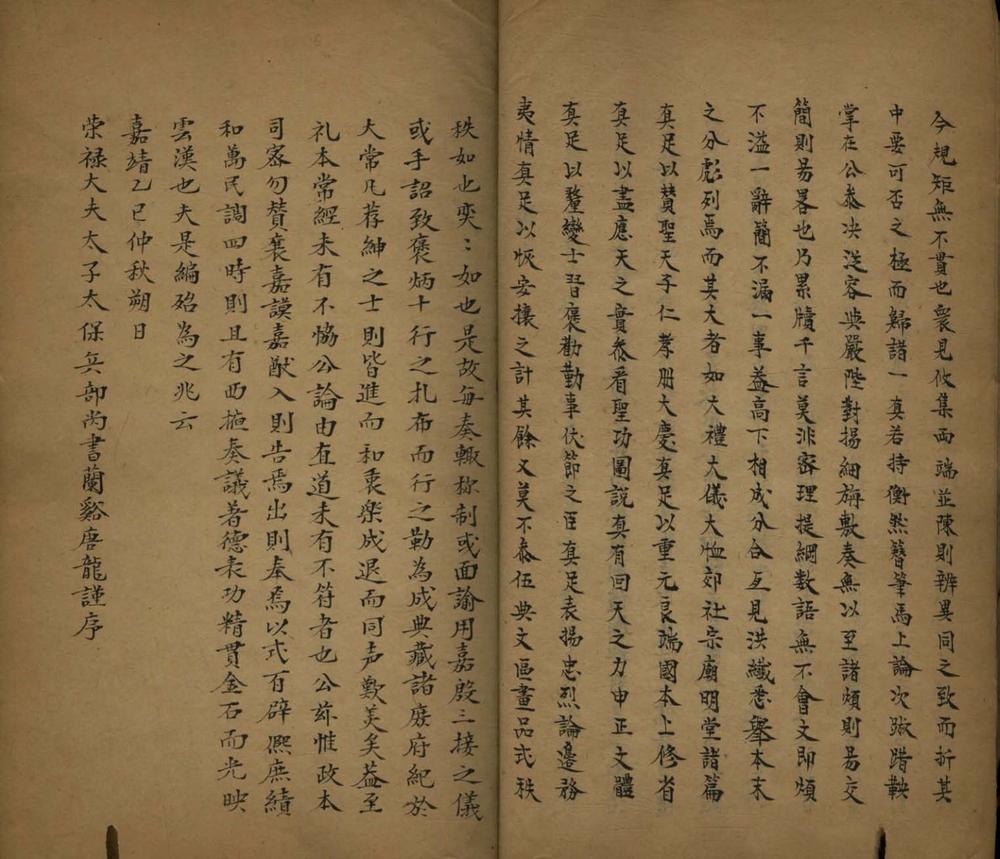 今規矩無不貫也衆見攸集兩端並陳則辨異同之致而折其
中要可否之極而歸諸一真若持衡然簪筆馬上論次踧踖鞅
掌在公叅决從容與嚴陛對揚細旃敷奏無以至諸煩則易交
簡則易畧也乃累牘千言莫非審理提綱数語無不會文即煩
不溢一辭簡不漏一事葢高下相成分合互見洪纖悉舉本末
之分彪列焉而其大者如大禮大儀大恤郊社宗廟明堂諸篇
真足以賛聖天子仁孝册大慶真足以重元良端國本上修省
真足以盡應天之實叅看聖功圖説真有回天之力申正文體
真足以釐變士習褒勸勤事伏節之臣真足表揚忠烈論邊務
夷情真足以恢安攘之計其餘又莫不叅伍典文區畫品式秩
秩如也奕：如也是故每奏輙称制或面諭用嘉殷三接之儀
或手詔致褒炳十行之札布而行之勒為成典藏諸廢府紀於
大常凡荐紳之士則皆進而和衷楽成退而同声歎美矣葢至
礼本常經未有不恊公論由直道未有不符者也公茲惟政本
司宻勿賛襄嘉謨嘉猷入則告焉出則奉為以式百辟熈庶績
和萬民調四時則且有西掖奏議著德表功精貫金石而光映
雲漢也夫是編殆為之兆云
嘉靖乙巳仲秋朔日
荣禄大夫太子太保兵部尚書蘭谿唐龍謹序